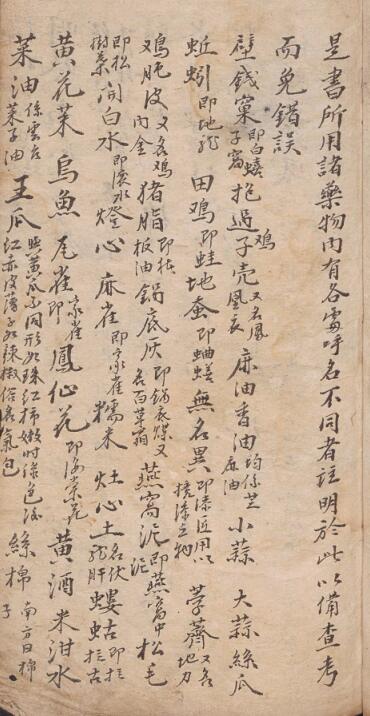 是書所用諸藥物內有各處呼名不同者註明於此以備查考
而免錯誤
壁錢窠即白蟢子窩 抱過雞子壳又名鳳凰衣 麻油香油均係芝麻油 小蒜 大蒜 絲瓜
蚯蚓即地龍 田鸡即蛙 地蚕即蛐蟮 無名異即漆匠用以搅漆之物 荸薺又名地力
鸡肫皮又名鸡內金 猪脂即猪板油 鍋底灰即鍋衣煤又名百草霜 燕窩泥即燕窩中泥 松毛
即松樹葉 滚白水即滚水 燈心 麻雀即家雀 糯米 灶心土名伏龍肝 螻蛄即拉拉古
黄花菜 烏魚 尾雀即家雀 鳳仙花即海棠花 黄酒 米泔水
菜油係雲台菜子油 王瓜與黄瓜不同形如珠红柿嫩时绿色熟红赤皮薄子如辣椒俗名氣包 絲棉南方曰棉子